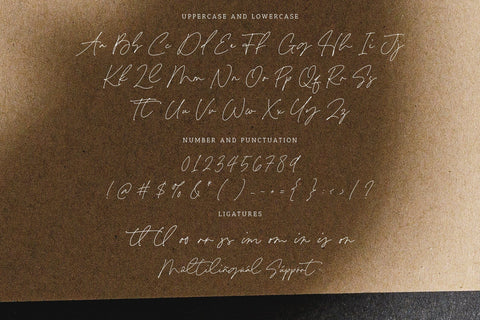 UPPERCASE AND LOWERCASE
Aa Bb Cc Dd Ee Ff Gg Hh Ii Jj
Kk Ll Mm Nn Oo Pp Qq Rr Ss
Tt Uu Vv Ww Xx Yy Zz
NUMBER AND PUNCTUATION
0123456789
! @ # $ % & * ( ) - + = { } : < > / ?
LIGATURES
tt tl oo or rs im om in is on
Multilingual Support